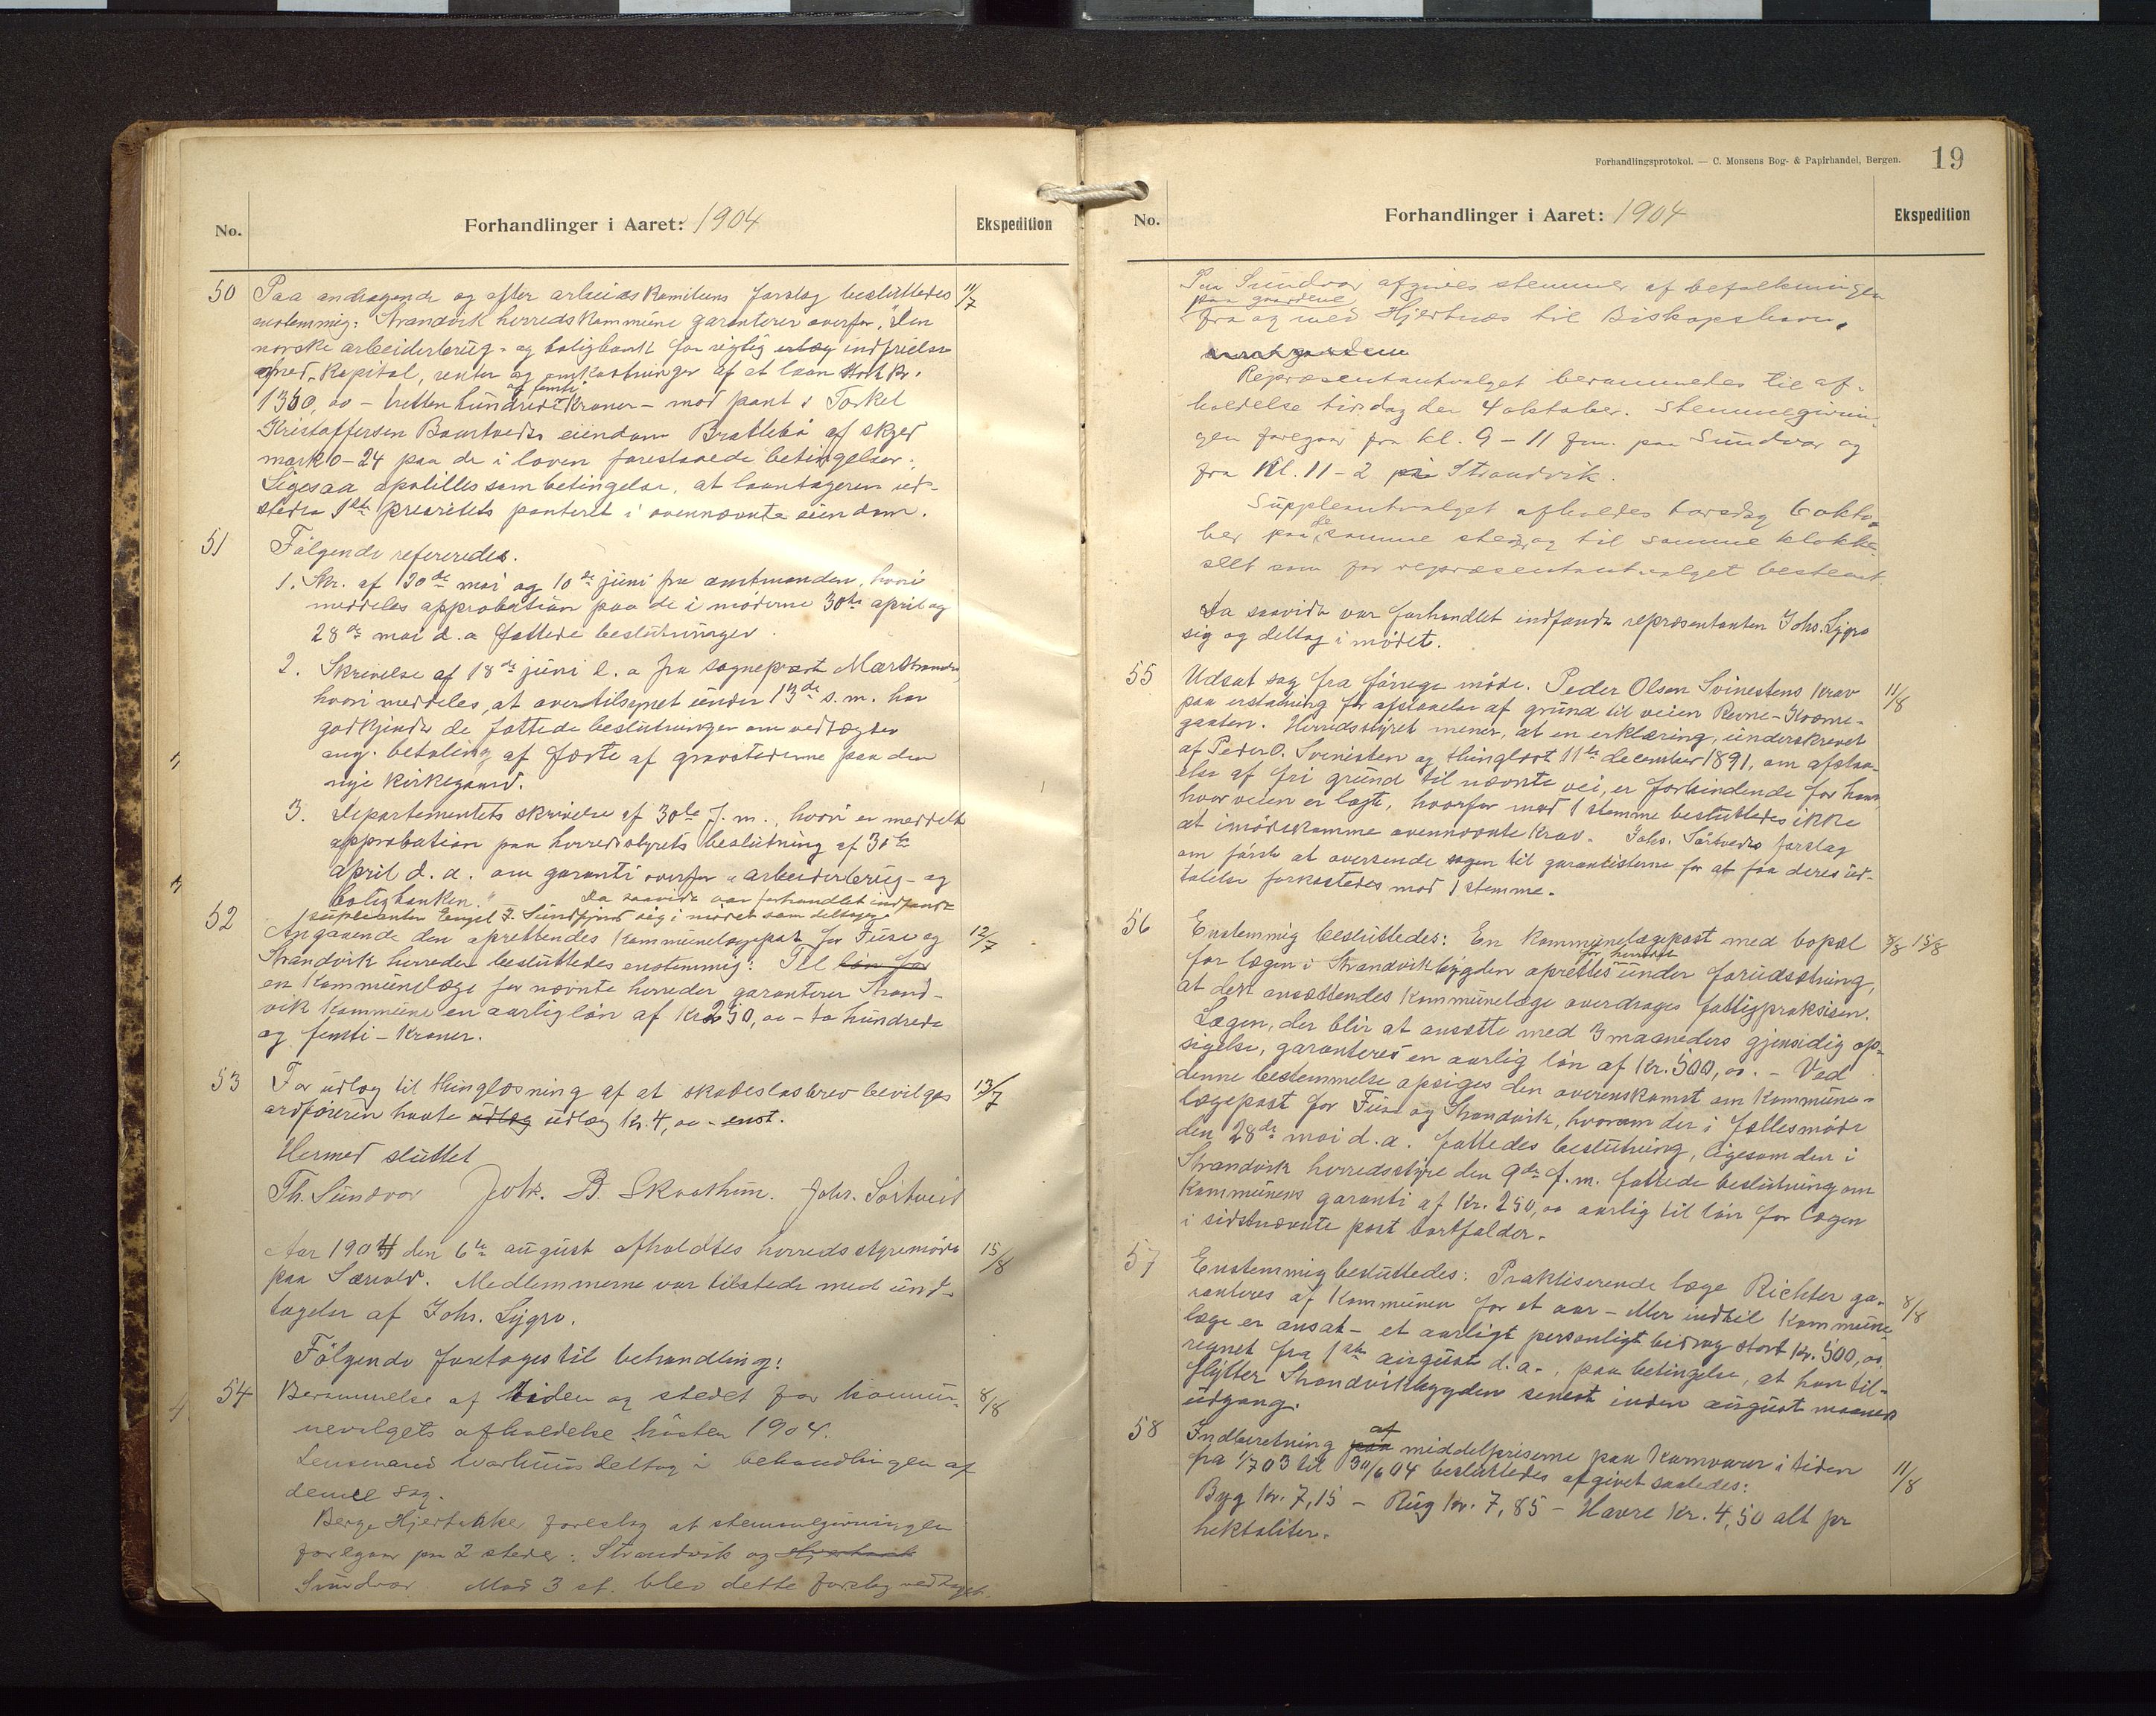 No.
Forhandlinger i Aaret: 1904
Ekspedition
50 Paa andragende og efter arbeidskomiteens forslag besluttedes 11/7
enstemmig: Strandvik herredskommune garanterer overfor "Den
norske arbeiderbrug- og boligbank for rigtig indfrielse
med kapital, renter og omkostninger af et laan stort kr.
1350,00 – tretten hundrede og femti kroner – mod pant i Torkel
Kristoffersen Bauntveds eiendom Bratlebø af skyld
mark 0-24 paa de i loven foreslaaede betingelser.
Ligesaa opstilles som betingelse, at laantageren ud-
steder 1ste prioritets panteret i ovennævnte eiendom.
51 Følgende refereredes.
1. Skr. af 20de mai og 10de juni fra amtmanden, hvori
meddeles approbation paa de i møderne 30te april og
28de mai d. a fattede beslutninger.
2. Skrivelse af 18de juni l. a fra sogneprest Marstrander,
hvori meddeles, at overtilsynet under 13de s. m. har
godkjendt de fattede beslutninger om vedtægter
ang. betaling af fæste af gravstederne paa den
nye kirkegaard.
3. Departementets skrivelse af 30te f. m., hvori er meddelt
approbation paa herredsstyrets beslutning af 30te
april d. a. om garanti overfor "arbeiderbrug- og
boligbanken." Da saavidt var forhandlet indfandt
suppleanten Engel J. Sundfjord sig i mødet som deltager
52 Angaaende den oprettendes kommunelægepost for Fuse og 12/7
Strandvik herreder besluttedes enstemmig: Til løn for
en kommunelæge for nævnte herreder garanterer Strand-
vik kommune en aarlig løn af kr. 250,00 – to hundrede
og femti – kroner.
53 For udlæg til thinglæsning af et skadesløsbrev bevilges 13/7
ordføreren havte udlæg udlæg kr. 4,00 – enst.
Hermed sluttet
Th. Sundvor Joh. B. Skaathun. Johs. Sørtveit
Aar 1904 den 6te august afholdtes herredsstyremøde 15/8
paa Særvold. Medlemmerne var tilstede med und-
tagelse af Johs. Lygre.
Følgende foretoges til behandling:
54 Berammelse af tiden og stedet for kommu- 8/8
nevalgets afholdelse høsten 1904.
Lensmand Warhuus deltog i behandlingen af
denne sag.
Berge Hjertaker foreslog at stemmegivningen
foregaar paa 2 steder: Strandvik og Hjertnes
Sundvor. Mod 3 st. blev dette forslag vedtaget.
Forhandlingsprotokol. — C. Monsens Bog- & Papirhandel, Bergen. 19
No.
Forhandlinger i Aaret: 1904
Ekspedition
Paa Sundvor afgives stemmer af befolkningen
paa gaardene
fra og med Hjertnes til Biskopshavn.
Repræsentantvalget berammedes til af-
holdelse tirsdag den 4 oktober. Stemmegivnin-
gen foregaar fra kl. 9 – 11 fm. paa Sundvor og
fra kl. 11 – 2 paa Strandvik.
Suppleantvalget afholdes torsdag 6 okto-
ber paa de samme steder og til samme klokke-
slet som for repræsentantvalget bestemt.
Da saavidt var forhandlet indfandt repræsentanten Johs. Lygre
sig og deltog i mødet.
55 Udsat sag fra forrige møde. Peder Olsen Svinestens krav 11/8
paa erstatning for afstaaelse af grund til veien Revne-Kvarne-
gaaten. Herredsstyret mener, at en erklæring, underskrevet
af Peder O. Svinesten og thinglæst 11te december 1891, om afstaa-
else af fri grund til nævnte vei, er forbindende for ham,
hvor veien er lagt, hvorfor mod 1 stemme besluttedes ikke
at imødekomme ovennævnte krav. Johs. Sørtveds forslag
om først at oversende sagen til garantisterne for at faa deres ud-
talelse forkastedes mod 1 stemme.
56 Enstemmig besluttedes: En kommunelægepost med bopæl 8/8 15/8
for lægen i Strandvikbygden oprettes for herredet under forudsætning,
at den ansættendes kommunelæge overdrages fattigpraksisen.
Lægen, der blir at ansætte med 3 maaneders gjensidig op-
sigelse, garanteres en aarlig løn af kr. 500,00. – Ved
denne bestemmelse opsiges den overenskomst om kommune-
lægepost for Fuse og Strandvik, hvorom der i fællesmøde
den 28de mai d. a. fattedes beslutning, ligesom den i
Strandvik herredsstyre den 9de f. m. fattede beslutning om
kommunens garanti af kr. 250,00 aarlig til løn for lægen
i sidstnævnte post bortfalder.
57 Enstemmig besluttedes: Praktiserende læge Richter ga-
ranteres af kommunen for et aar – eller indtil kommune- 8/8
læge er ansat – et aarligt personligt bidrag stort kr. 500,00
regnet fra 1ste august d. a., paa betingelse, at han til-
flytter Strandvikbygden senest inden august maaneds
udgang.
58 Indberetning paa af middelpriserne paa kornvarer i tiden 11/8
fra 1/7 03 til 30/6 04 besluttedes afgivet saaledes:
Byg kr. 7,15 – Rug kr. 7,85 – Havre kr. 4,50 alt pr
hektoliter.